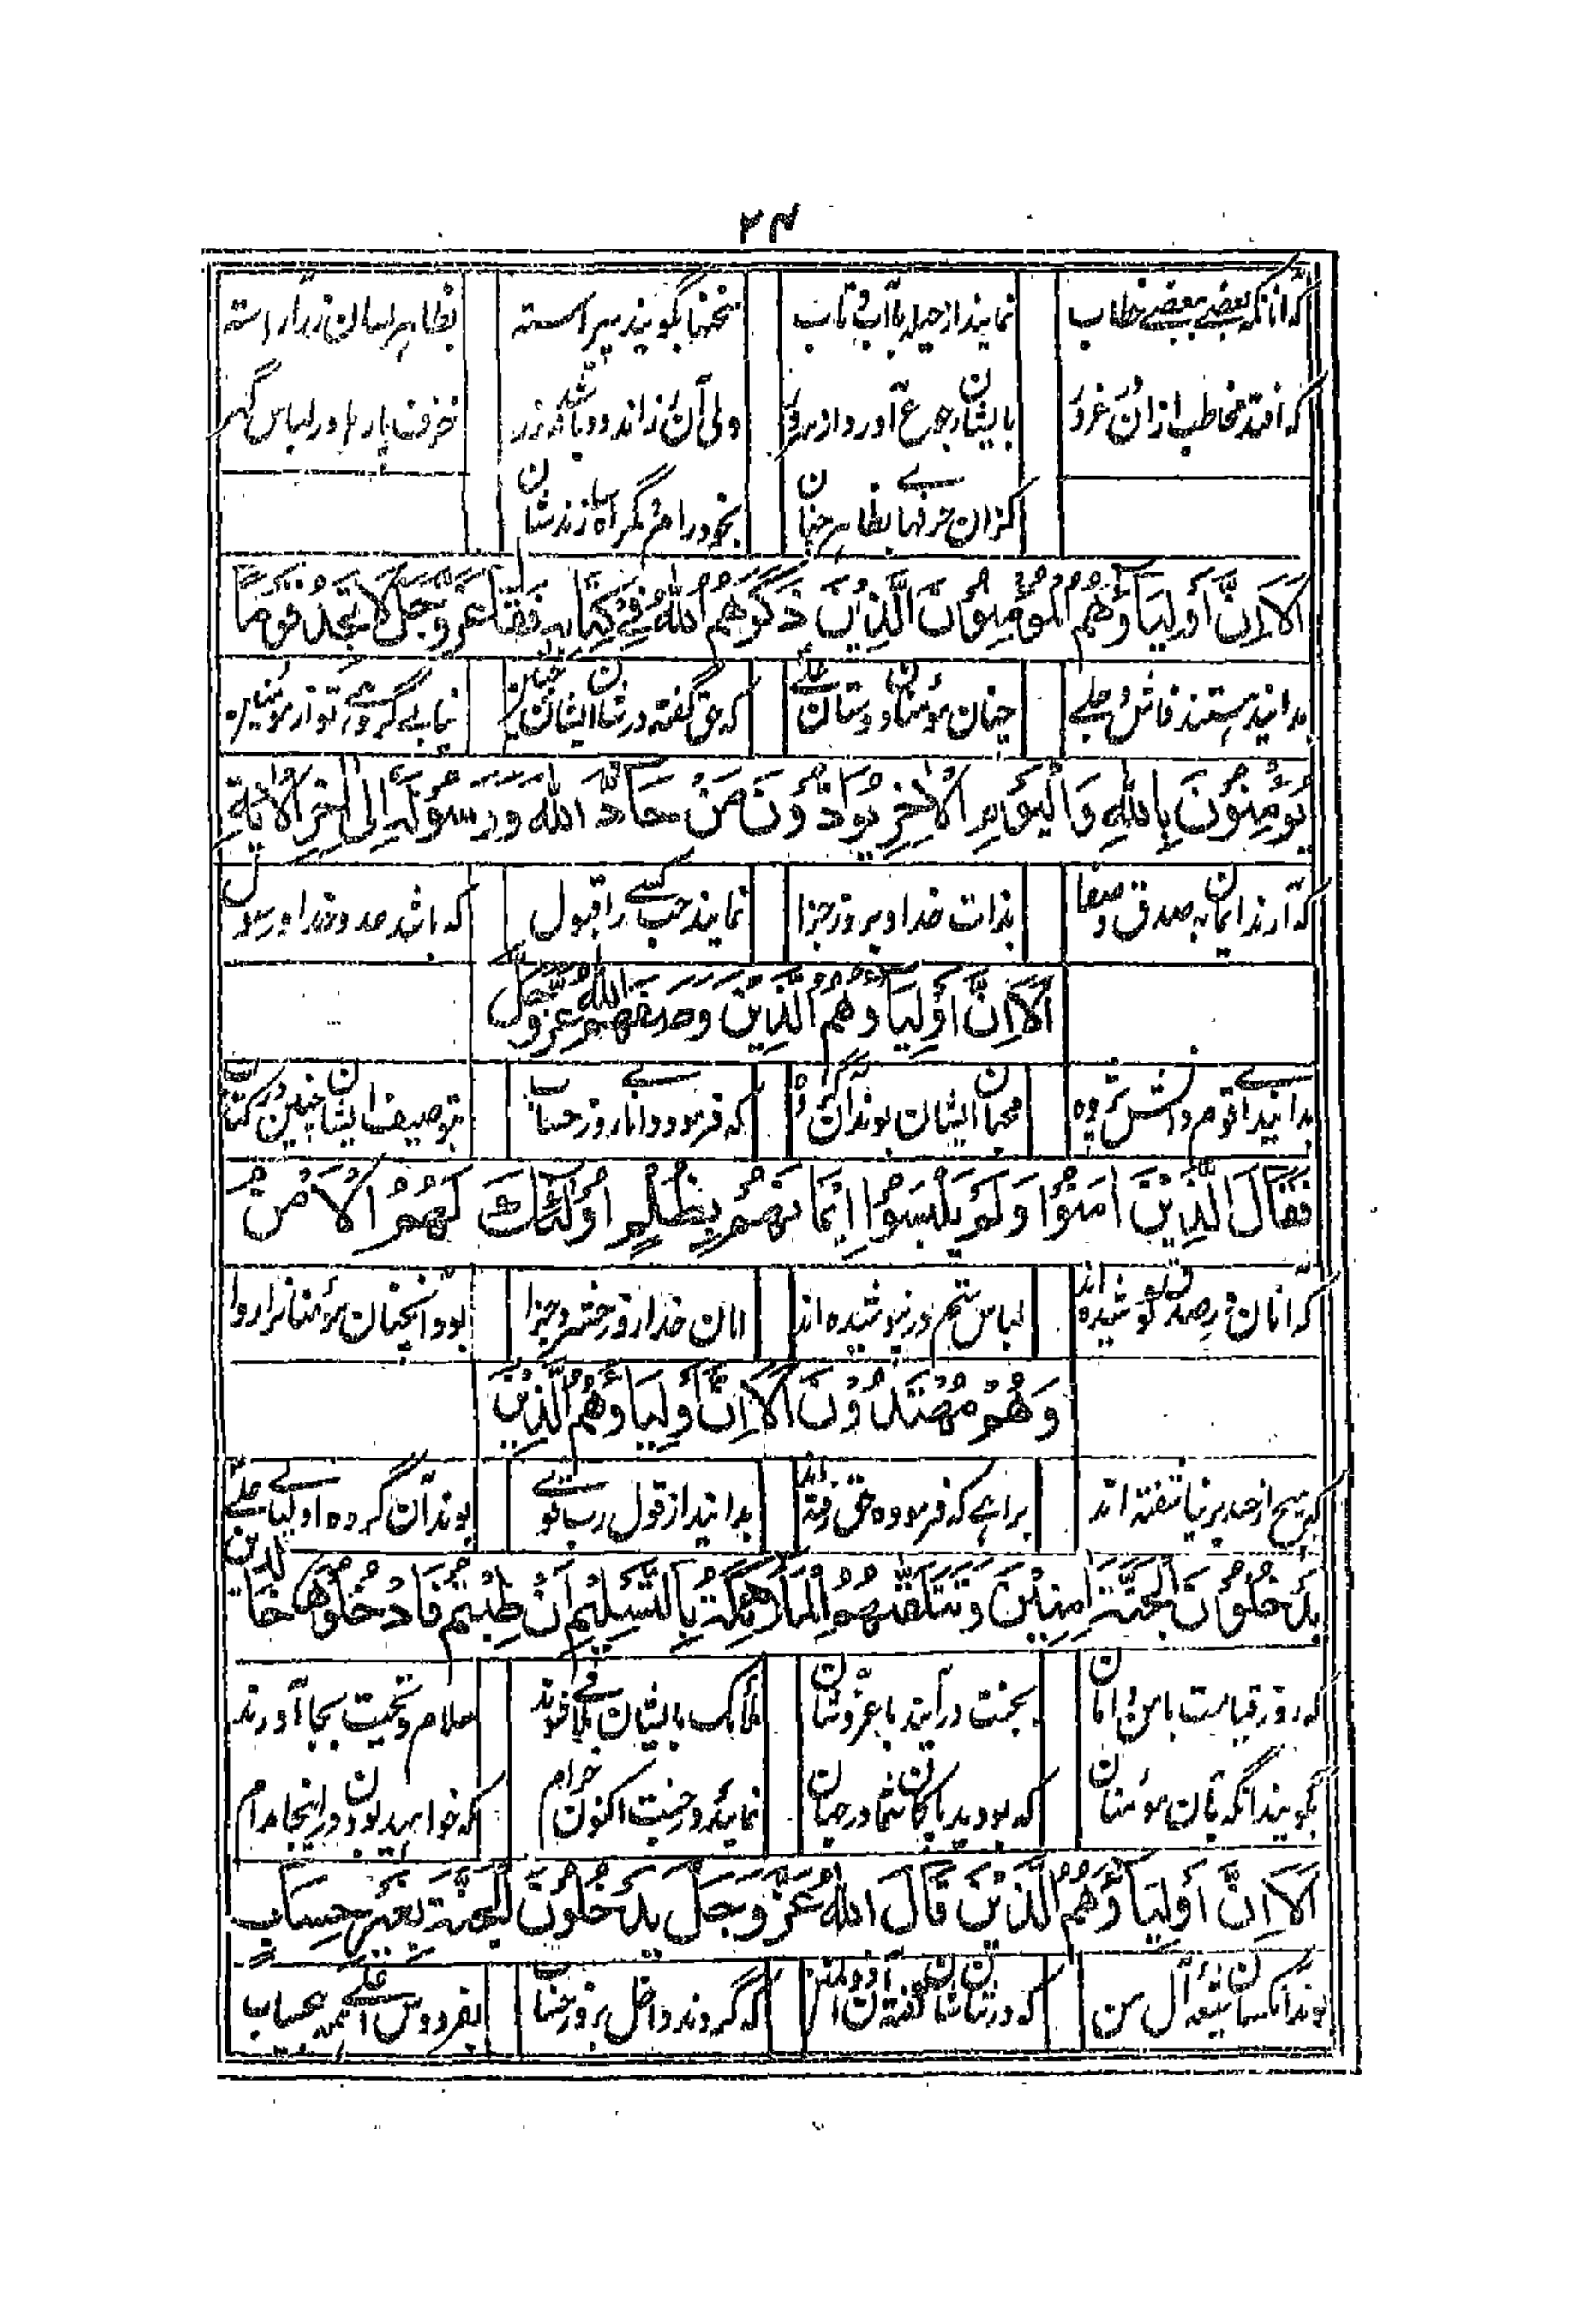 ۲۴
که آنانکه بعضے ببعضے خطاب نمایند از حیله با آب و تاب سخنها بگویند پیراسته بظاهر بسان زر آراسته
که افتد مخاطب ازان در غرور بایشان رجوع آورد ولی آن زر اندود باشد نه زر خزف پاره در لباس گهر
کزان حرفها بظاهر بخود رام گمراه سازندشان
الا ان اولیاؤهم المؤمنون الذین ذکرهم الله فی کتابه فقال عز و جل لا تجد قوما
بدانید هستند فاش و جلے چنان مؤمنان دوستان علے که حق گفته در شان ایشان چنین نیابے گروهے تو از مؤمنین
یؤمنون بالله و الیوم الاخر یوادون من حاد الله و رسوله الی اخر الایة
که آرند ایمان به صدق و صفا بذات خدا و بروز جزا نمایند حب کسے را قبول که باشد عدو خدا و رسول
الا ان اولیاؤهم الذین وصفهم الله عز و جل
بدانید اے قوم دانش پژوه محبان ایشان بوند آن گروه که فرمود دانای روز حساب بتوصیف ایشان چنین در کتاب
فقال الذین امنوا و لم یلبسوا ایمانهم بظلم اولئک لهم الامن
که آنان در صدق کوشیده اند لباس ستم در نپوشیده اند امان خدا روز حشر و جزا بود آنچنان مؤمنان را روا
و هم مهتدون الا ان اولیاؤهم الذین
که هیچ از حد برنیاشفته اند براهے که فرموده حق رفته اند بدانید از قول رب بوند آن گروه اولیاے علے
الذین یدخلون الجنة امنین و تتلقهم الملائکة بالتسلیم ان طبتم فادخلوها خالدین
که روز قیامت با من و امان بجنت درآیند با عز و شان ملائک بایشان تلاقی کنند سلام و تحیت بجا آورند
بگویند آنگه بآن مؤمنان که بودید پاکان شما در جهان نمائید در جنت اکنون خرام که خواهید بودن در اینجا مدام
الا ان اولیاؤهم الذین قال الله عز و جل یدخلون الجنة بغیر حساب
بوند آنکسان شیعهٔ آل من که در شان شان گفته آن ذو المنن که گردند داخل بروز حساب بفردوس اعلے همه بیحساب